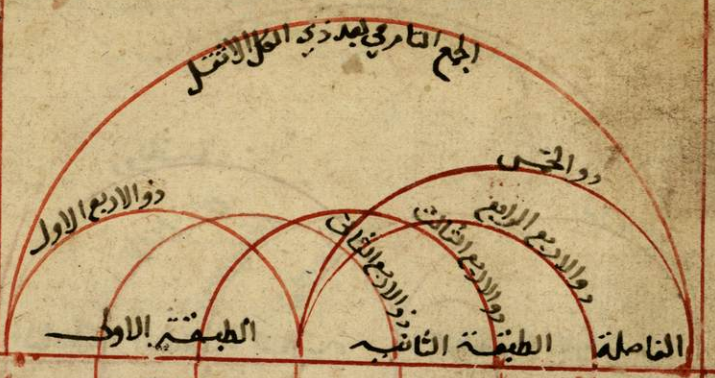 الجمع التام في بعد ذي الكل الاثقل
ذو الخمس
ذو الاربع الاول
ذو الاربع الثاني
ذو الاربع الثالث
ذو الاربع الرابع
الفاصلة
الطبقة الثانيه
الطبقة الاولى